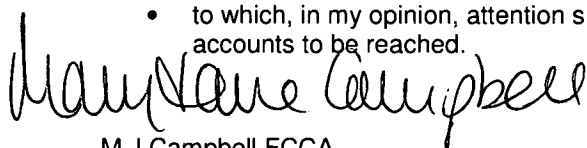 • to which, in my opinion, attention s
accounts to be reached.
Mary Jane Campbell
M J Campbell FCCA